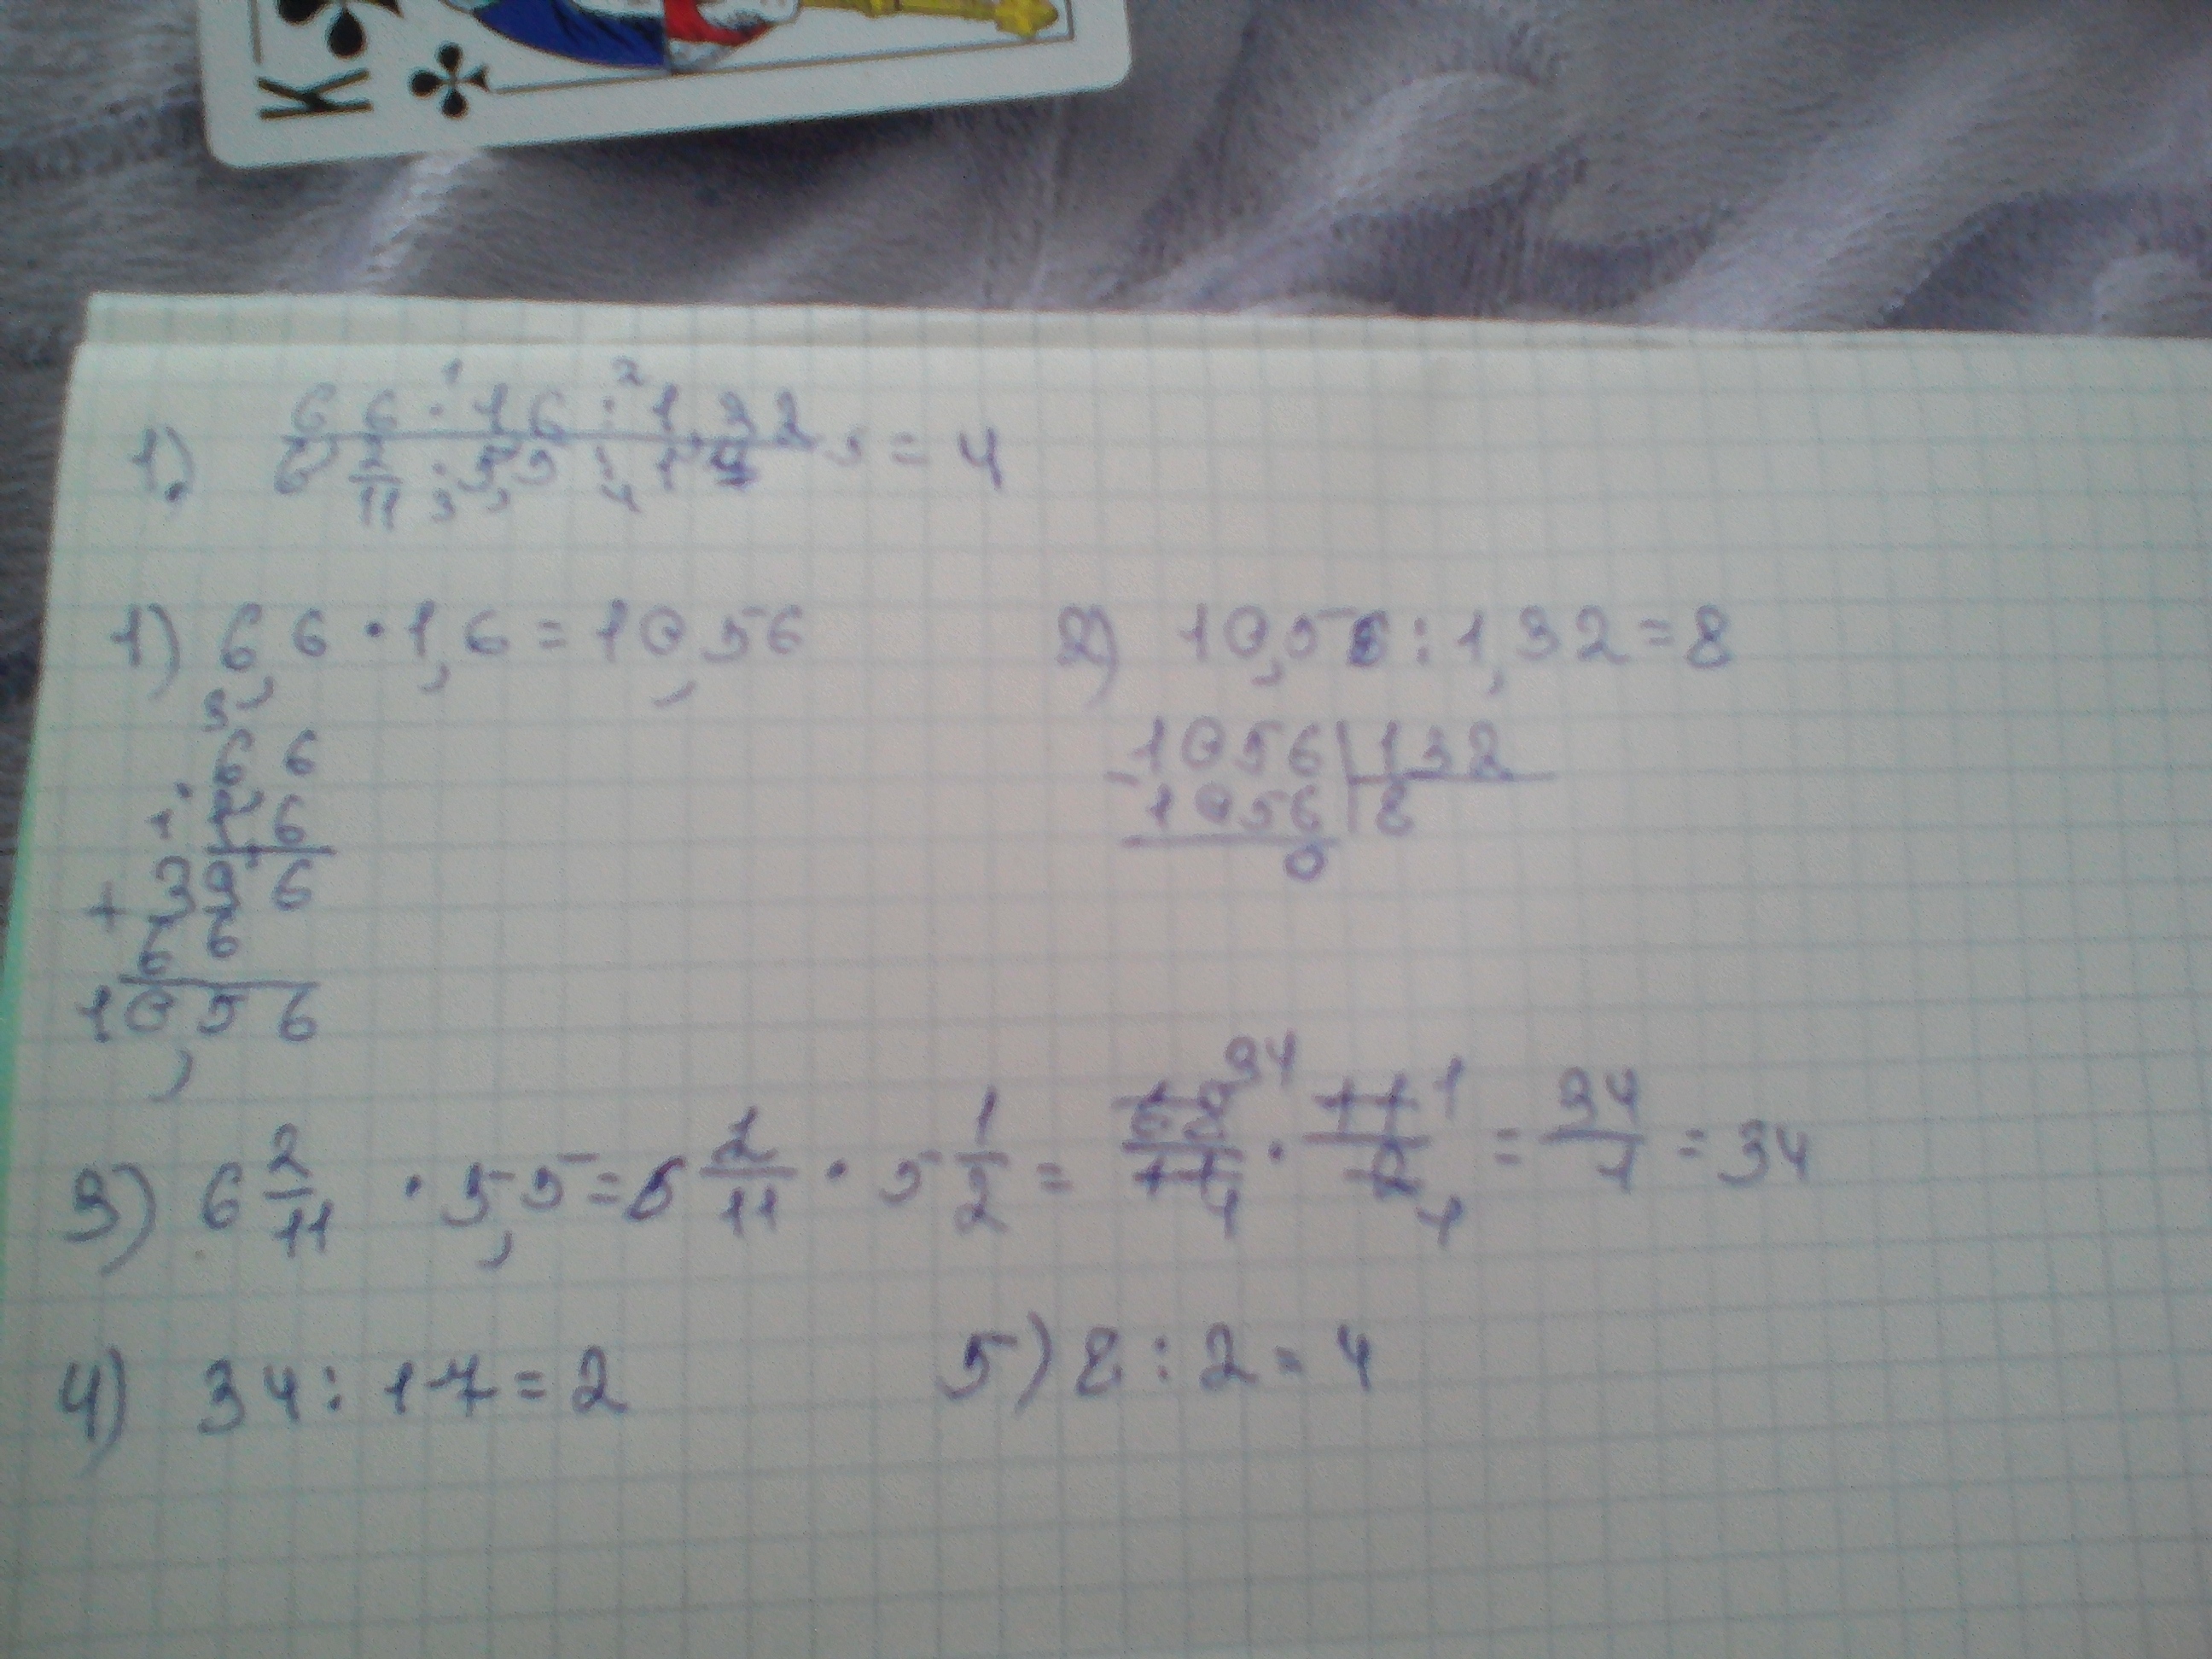 K
1) 66 · 16 : 1,32
6 2/11 · 5,5 : 17 = 4
1) 6,6 · 1,6 = 10,56
2) 10,56 : 1,32 = 8
66
16
+ 396
66
10,56
- 1056 | 132
1056 | 8
0
3) 6 2/11 · 5,5 = 6 2/11 · 5 1/2 = 68/11 · 11/2 = 34/1 = 34
4) 34 : 17 = 2
5) 8 : 2 = 4